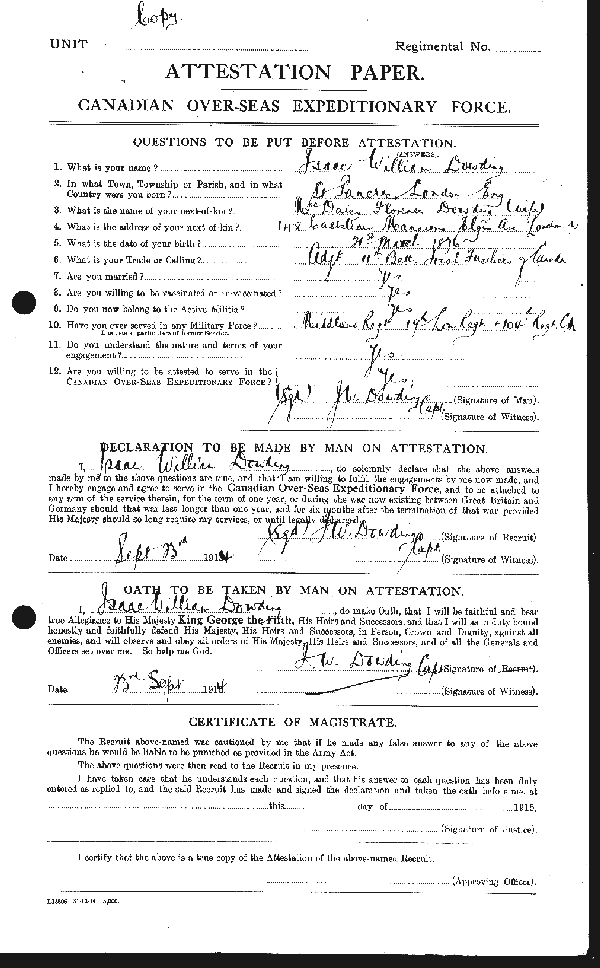 Copy
UNIT Regimental No.
ATTESTATION PAPER.
CANADIAN OVER-SEAS EXPEDITIONARY FORCE.
QUESTIONS TO BE PUT BEFORE ATTESTATION.
(ANSWERS)
1. What is your name? Isaac William Dowding
2. In what Town, Township or Parish, and in what
Country were you born? St Pancras London Eng
3. What is the name of your next-of-kin? Florence Dowding (wife)
4. What is the address of your next of kin? Mansions Elgin Ave London W
5. What is the date of your birth? 21st March 1876
6. What is your Trade or Calling? Adjt 11th Batt
7. Are you married? Yes
8. Are you willing to be vaccinated or re-vaccinated? Yes
9. Do you now belong to the Active Militia? Yes
10. Have you ever served in any Military Force? Middlesex Regt 19th Lon Regt + 104th Regt Can
If so, state particulars of former Service.
11. Do you understand the nature and terms of your
engagement? Yes
12. Are you willing to be attested to serve in the
CANADIAN OVER-SEAS EXPEDITIONARY FORCE? Yes
(Sgd) I W Dowding Capt. (Signature of Man).
(Signature of Witness).
DECLARATION TO BE MADE BY MAN ON ATTESTATION.
I, Isaac William Dowding, do solemnly declare that the above answers
made by me to the above questions are true, and that I am willing to fulfil the engagements by me now made, and
I hereby engage and agree to serve in the Canadian Over-Seas Expeditionary Force, and to be attached to
any arm of the service therein, for the term of one year, or during the war now existing between Great Britain and
Germany should that war last longer than one year, and for six months after the termination of that war provided
His Majesty should so long require my services, or until legally discharged.
(Sgd) I W. Dowding Capt (Signature of Recruit)
Date Sept 23rd 1914 (Signature of Witness)
OATH TO BE TAKEN BY MAN ON ATTESTATION.
I, Isaac William Dowding, do make Oath, that I will be faithful and bear
true Allegiance to His Majesty King George the Fifth, His Heirs and Successors, and that I will as in duty bound
honestly and faithfully defend His Majesty, His Heirs and Successors, in Person, Crown and Dignity, against all
enemies, and will observe and obey all orders of His Majesty, His Heirs and Successors, and of all the Generals and
Officers set over me. So help me God.
I W Dowding Capt (Signature of Recruit)
Date 23rd Sept 1914 (Signature of Witness)
CERTIFICATE OF MAGISTRATE.
The Recruit above-named was cautioned by me that if he made any false answer to any of the above
questions he would be liable to be punished as provided in the Army Act.
The above questions were then read to the Recruit in my presence.
I have taken care that he understands each question, and that his answer to each question has been duly
entered as replied to, and the said Recruit has made and signed the declaration and taken the oath before me, at
this day of 1915.
(Signature of Justice)
I certify that the above is a true copy of the Attestation of the above-named Recruit.
(Approving Officer)